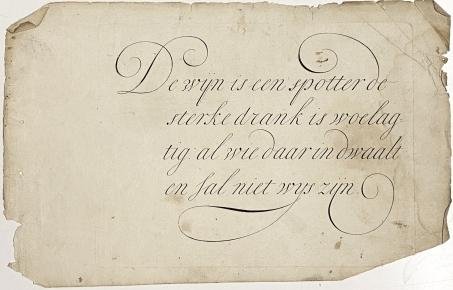 De wijn is een spotter de
sterke drank is woelag
tig: al wie daar in dwaalt
en sal niet wys zijn